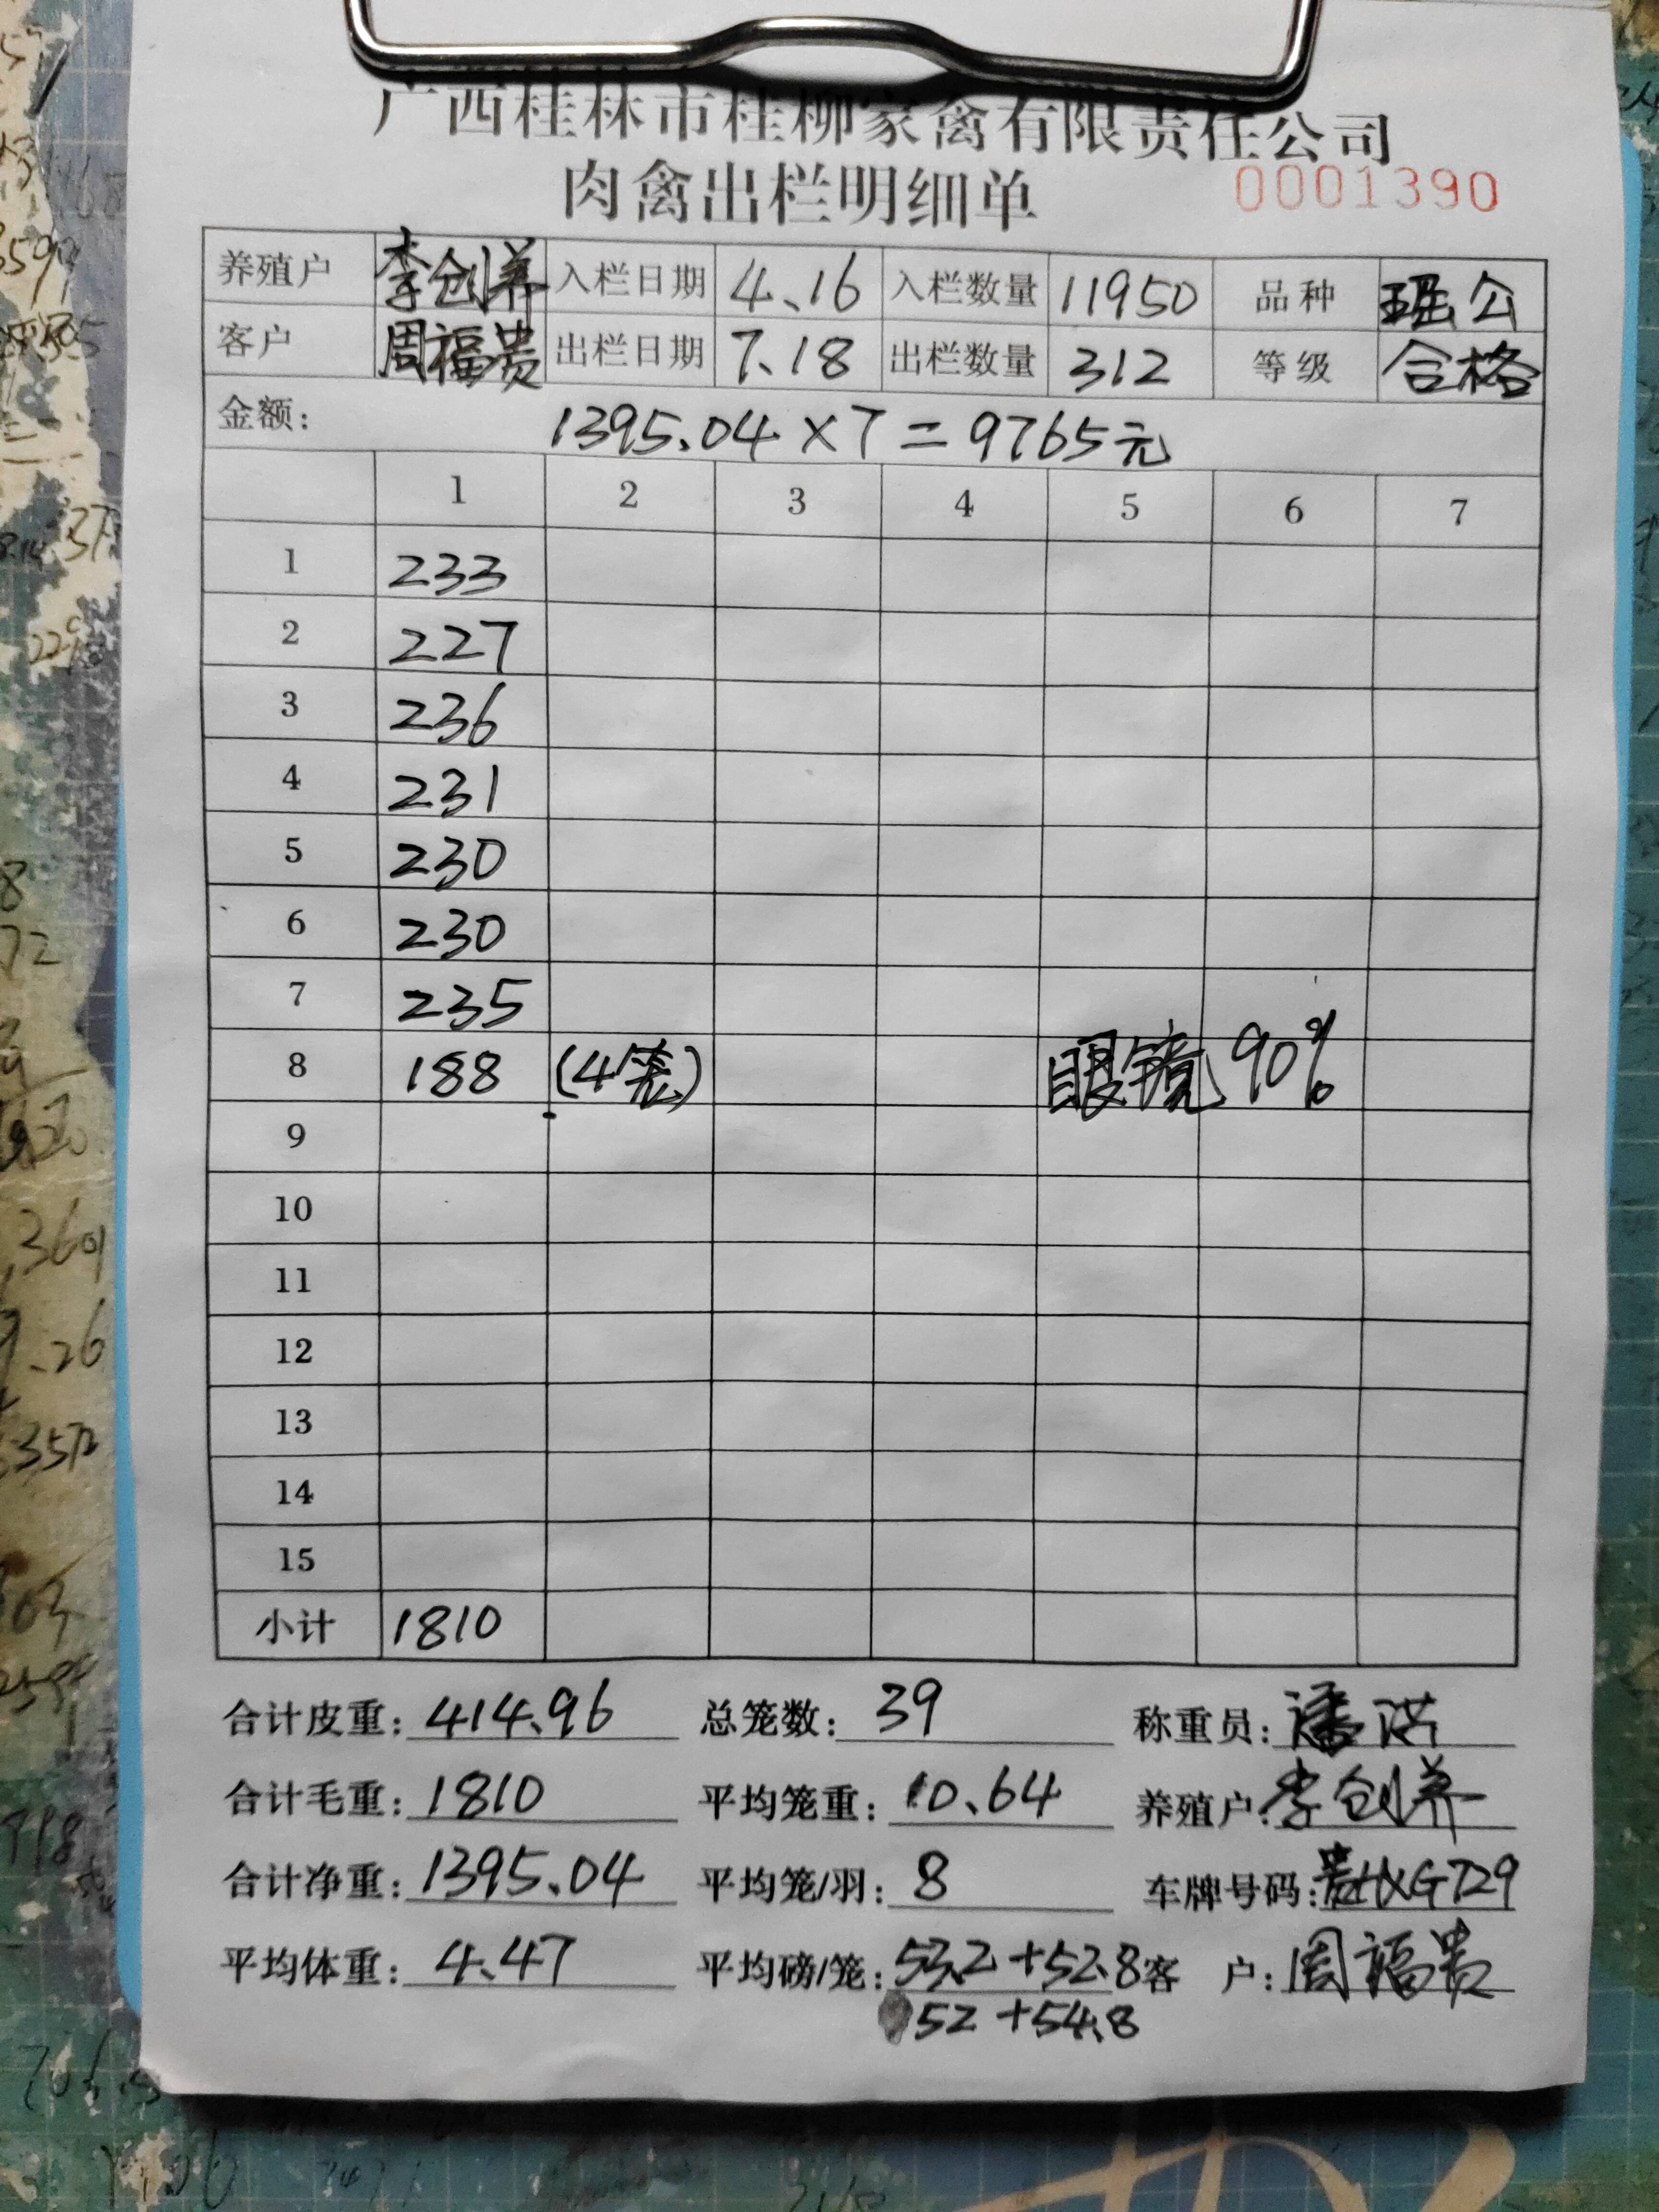 广西桂林市桂柳家禽有限责任公司
肉禽出栏明细单 0001390
养殖户 李创养 入栏日期 4.16 入栏数量 11950 品种 瑶公
客户 周福贵 出栏日期 7.18 出栏数量 312 等级 合格
金额: 1395.04×7=9765元
1 2 3 4 5 6 7
1 233
2 227
3 236
4 231
5 230
6 230
7 235
8 188 (4笼) 眼镜90%
9
10
11
12
13
14
15
小计 1810
合计皮重: 414.96 总笼数: 39 称重员: 潘洪
合计毛重: 1810 平均笼重: 10.64 养殖户: 李创养
合计净重: 1395.04 平均笼/羽: 8 车牌号码:
平均体重: 4.47 平均磅/笼: 53.2+52.8 客 户: 周福贵
52+54.8